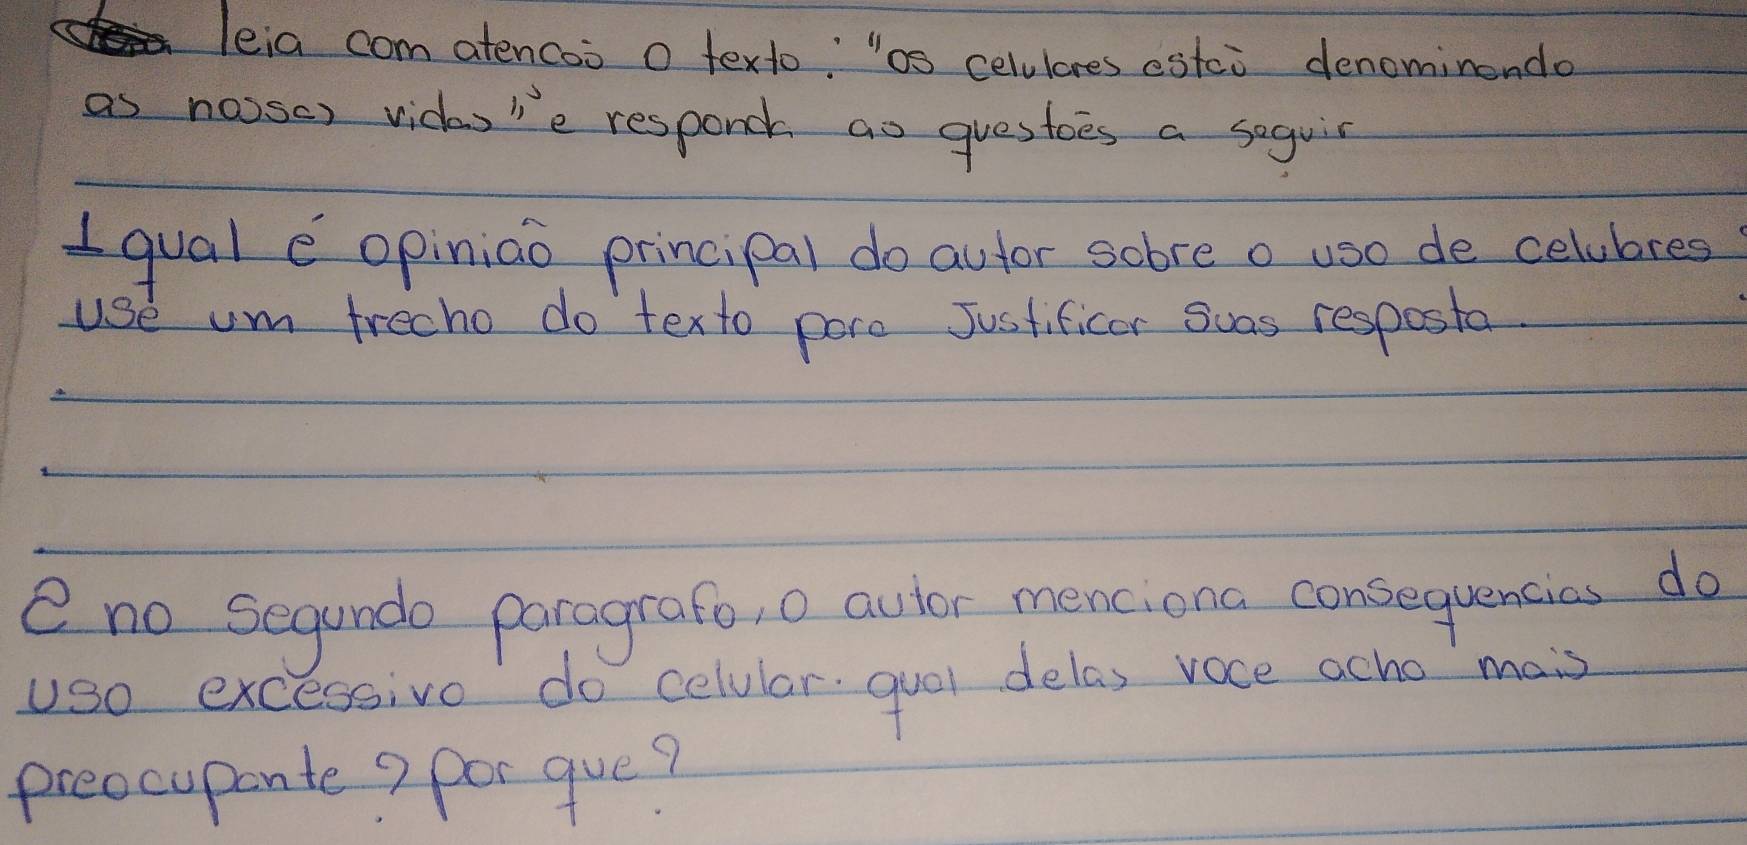 leia com atencoõ o texto: "os celulares estcõ denominando
as nossas vidas", e responda as questoẽs a seguir
1 qual é opiniaõ principal do autor sobre o uso de celulares?
use um trecho do texto para Justificar Suas resposta.
2 no Segundo paragrafo, o autor menciona consequencias do
uso excessivo do celular. qual delas voce acha mais
preocupante? por que?